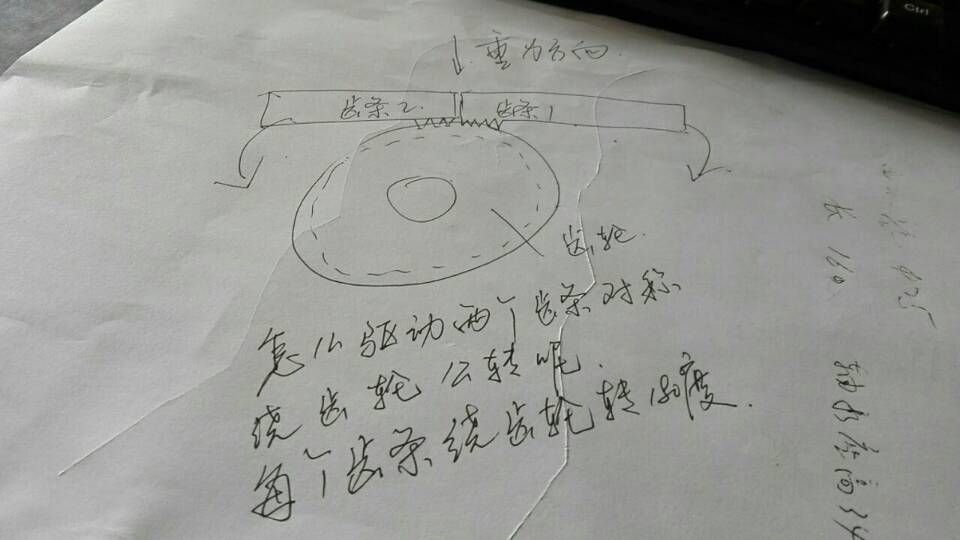 重力方向
齿条2
齿条1
齿轮
怎么驱动两个齿条对称
绕齿轮公转呢.
每个齿条绕齿轮转180度.
长 160
Ctrl